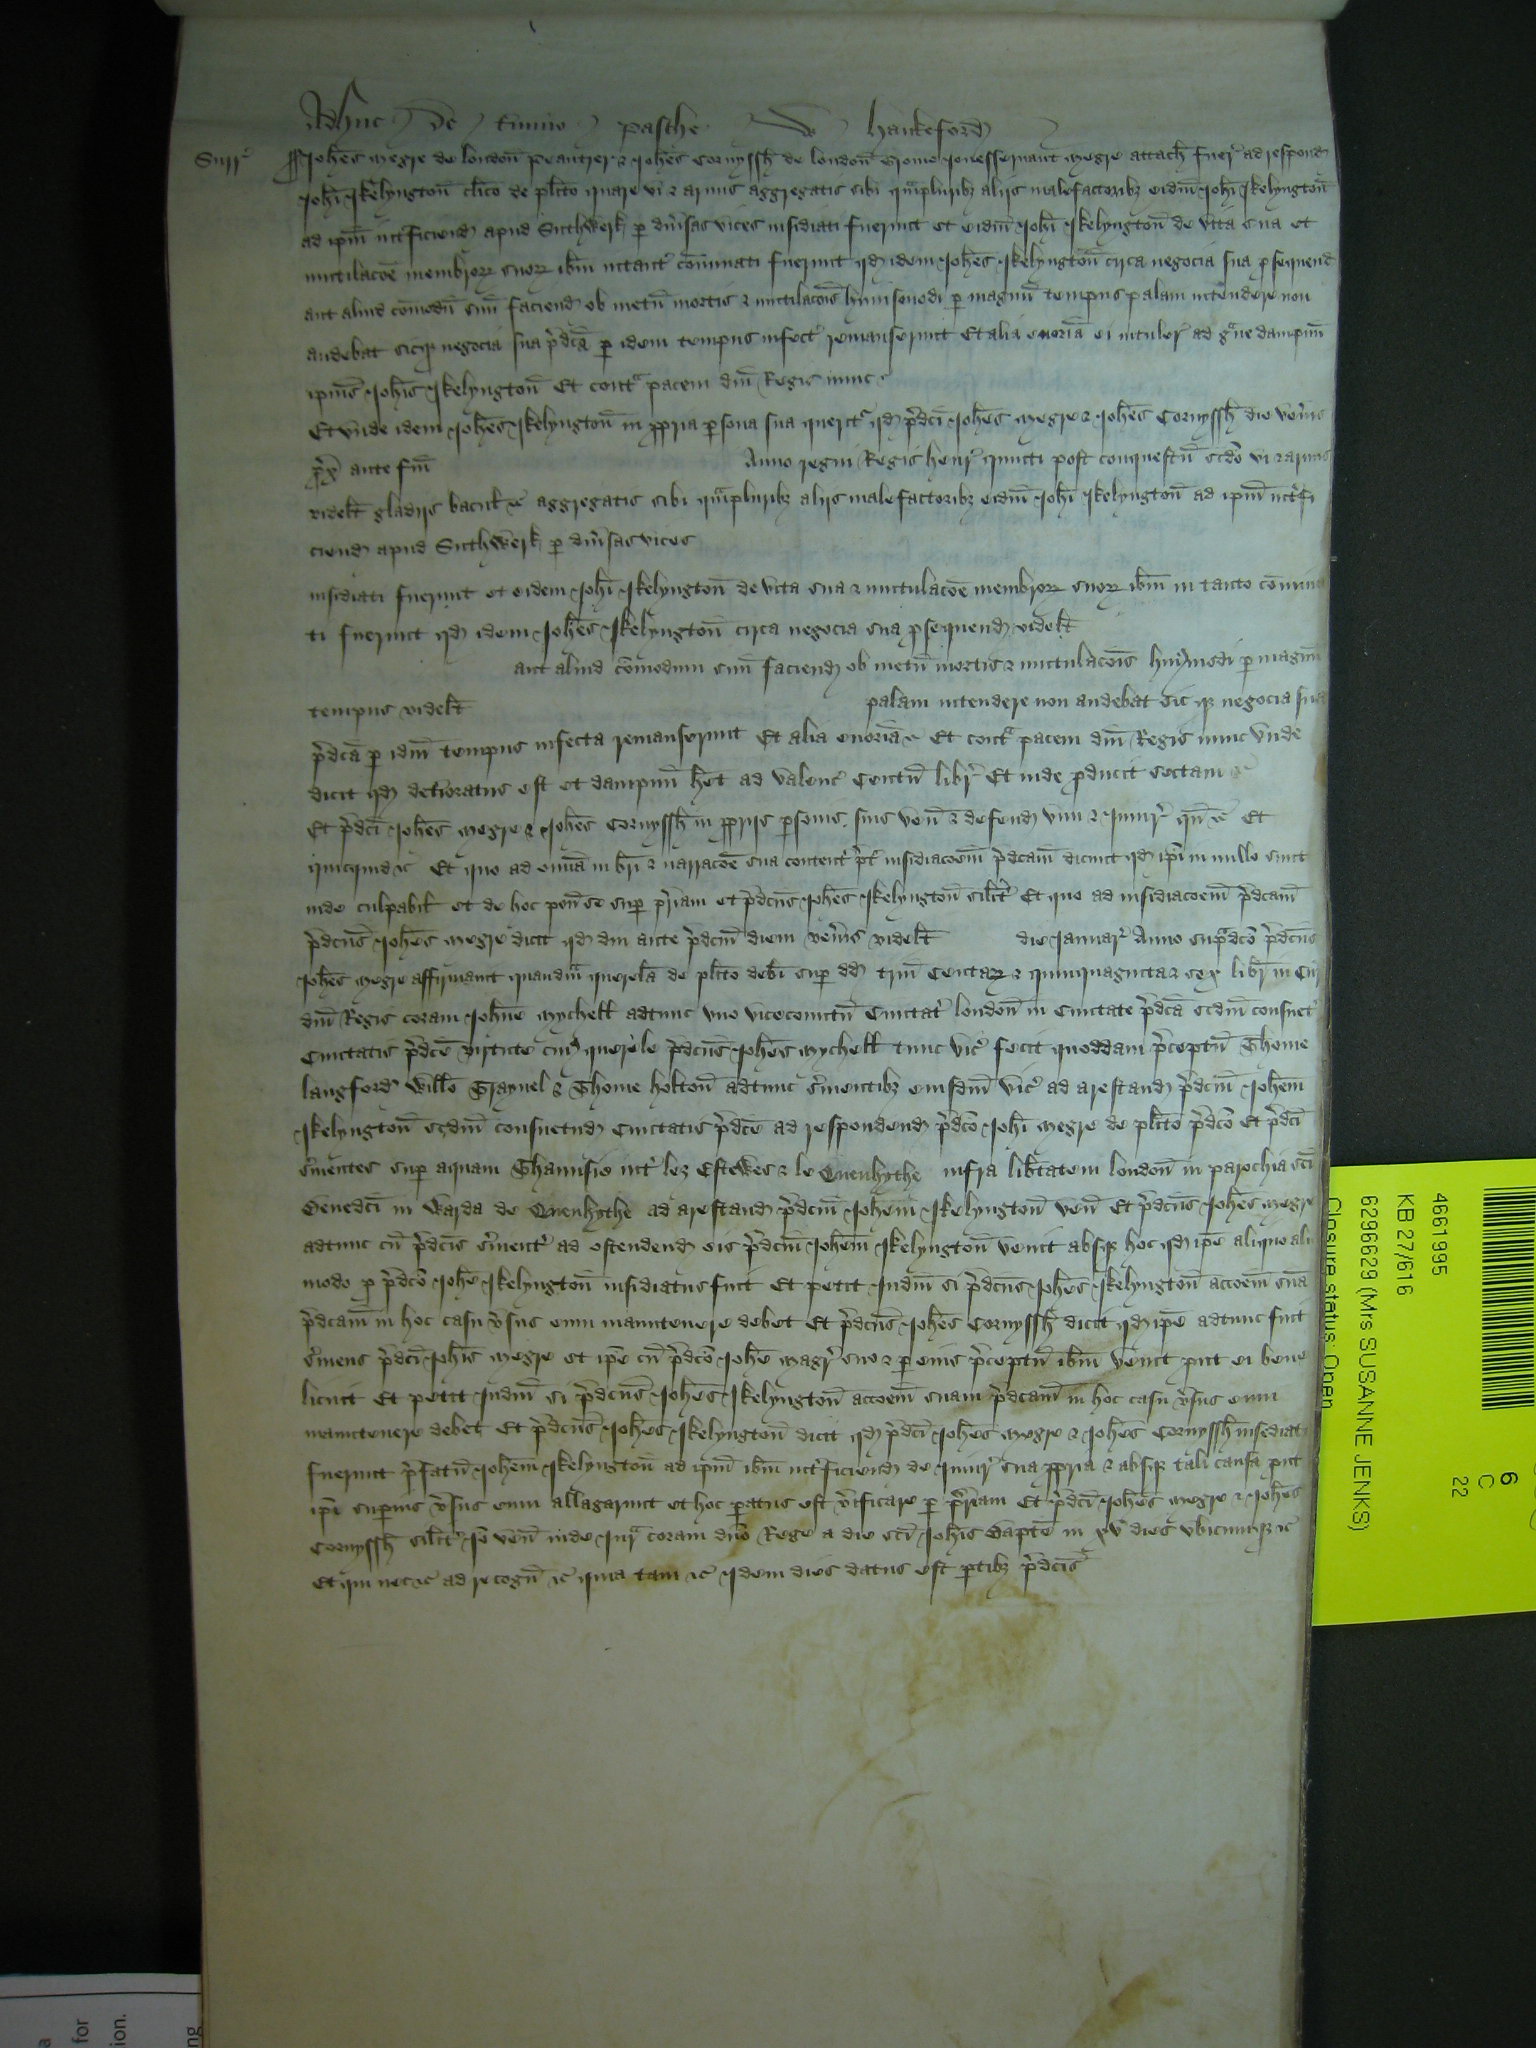 Adhuc de Termino Pasche Hankeford
Surr'
Joh̄es Megre de london̄ peautrer & Joh̄es Cornyssh̄ de london̄ Jonesservaunt Megre attach̄ fuer' ad respond
Joh̄i Skelyngton̄ cl̄ico de pl̄ito quare vi & armis aggregatis sibi qͣmpluribȝ aliis malefactoribȝ eidm̄ Joh̄i Skelyngton̄
ad ip̄m int'ficiend apud Suthwerk ꝑ div'sas vices insidiati fuerunt et eidm̄ Joh̄i Skelyngton̄ de vita sua et
mutilacōe membroꝝ suoꝝ ib̄m intant' cōminati fuerunt qd idem Joh̄es Skelyngton̄ circa negocia sua ꝓsequend
aut aliud cōmodū suū faciend ob metū mortis & mutilacōis hui'modi ꝑ magnū tempus palam intendere non
audebat sicqȝ negocia sua p̄dcā ꝑ idem tempus infect' remanserunt Et alia enormia ei intuler' ad gͣve dampnū
ip̄ius Joh̄is Skelyngton̄ Et contͣ pacem dn̄i Regis nunc
Et unde idem Joh̄es Skelyngton̄ in ꝓpria ꝑsona sua querit' qd p̄dci Joh̄es Megre & Joh̄es Cornyssh̄ die Ven̄is
px̄ ante fm̄ Anno regni Regis Henr' quinti post conquestū scdo vi & armis
videlt gladiis bacul' &c aggregatis sibi qͣmpluribȝ aliis malefactoribȝ eidm̄ Joh̄i Skelyngton̄ ad ip̄m int'fi
ciend apud Suthwerk ꝑ div'sas vices
insidiati fuerunt et eidem Joh̄i Skelyngton̄ de vita sua & mutulacōe membroꝝ suoꝝ ib̄m in tanto cōmina
ti fuerunt qd idem Joh̄es Skelyngton̄ circa negocia sua ꝓsequend videlt
aut aliud cōmodum suū faciend ob metū mortis & mutulacōis hui'modi ꝑ magnū
tempus videlt palam intendere non audebat sic qȝ negocia sua
p̄dcā ꝑ idm̄ tempus infecta remanserunt Et alia enormia &c Et contͣ pacem dn̄i Regis nunc Unde
dicit qd det'ioratus est et dampnū h̄et ad valenc' Centū libr' Et inde ꝓducit sectam &c
Et p̄dci Joh̄es Megre & Joh̄es Cornyssh̄ in ꝓpriis ꝑsonis suis ven̄ & defend vim & iniur' qn̄ &c Et
quicquid &c Et quo ad omia in br̄i & narracōe sua content' p̄t' insidiacoem̄ p̄dcam̄ dicunt qd ip̄i in nullo sunt
inde culpabil' et de hoc pon̄ se suꝑ pr̄iam et p̄dcus Joh̄es Skelyngton̄ silit' Et quo ad insidiacoem̄ p̄dcam̄
p̄dcus Joh̄es Megre dicit qd diu ante p̄dcm̄ diem Ven̄is videlt die Januar' Anno supͣdco p̄dcus
Joh̄es Megre affirmavit quandm̄ querelā de pl̄ito debi suꝑ Centaꝝ & quinquaginta & sex libr' in Cur
dn̄i Regis coram Joh̄ne Mychell adtunc uno vicecomitū Civitat' london̄ in Civitate p̄dcā scdm̄ consuet'
Civitatis p̄dcē virtute cui' querele p̄dcus Joh̄es Mychell tunc vic' fecit quoddam p̄ceptū Thome
langford Willo Graynel & Thome holton̄ adtunc s'vientibȝ eiusdm̄ vic' ad arestand p̄dcm̄ Joh̄em
Skelyngton̄ scdm̄ consuetud Civitatis p̄dcē ad respondend p̄dco Joh̄i Megre de pl̄ito p̄dco Et p̄dci
s'vientes suꝑ aquam Thamisie int' leȝ Estewes & le Quenhythe infra lib̄tatem london̄ in parochia sc̄i
Benedc̄i in Warda de Quenhythe ad arestand p̄dcm̄ Joh̄em Skelyngton̄ ven̄ Et p̄dcus Joh̄es Megre
adtunc cū p̄dcis s'vient' ad ostendend eis p̄dcm̄ Joh̄em Skelyngton̄ venit absqȝ hoc qd ip̄e aliquo alio
modo ꝓ p̄dco Joh̄e Skelyngton̄ insidiatus fuit Et petit iudm̄ si p̄dcus Joh̄es Skelyngton̄ accoem̄ suā
p̄dcam̄ in hoc casu v'sus eum manutenere debet Et p̄dcus Joh̄es Cornyssh̄ dicit qd ip̄e adtunc fuit
s'viens p̄dci Joh̄is Megre et ip̄e cū p̄dco Joh̄e magr̄o suo & ꝑ eius p̄ceptū ib̄m venit put ei bene
licuit Et petit iudm̄ si p̄dcus Joh̄es Skelyngton̄ accoem̄ suam p̄dcam̄ in hoc casu v'sus eum
manutenere debet Et p̄dcus Joh̄es Skelyngton̄ dicit qd p̄dci Joh̄es Megre & Joh̄es Cornyssh̄ insediati
fuerunt p̄fatū Joh̄em Skelyngton̄ ad ip̄m ib̄m int'ficiend de iniur' sua ꝓpria & absqȝ tali causa put
ip̄i superius v'sus eum allagarunt et hoc ꝑatus est v'ificare ꝑ pr̄iam Et p̄dci Joh̄es Megre & Joh̄es
Cornyssh̄ silit' Jo ven̄ inde Jurͣ coram dn̄o Rege a die sc̄i Joh̄is Bapte in xv dies ubicumqȝ &c
Et qui nec &c ad recogn̄ &c quia tam &c idem dies datus est ꝑtibȝ p̄dcis &c
4661995
KB 27/616
6296629 (Mrs SUSANNE JENKS)
Closure status: Open
6
C
22
a
for
ion.
ng